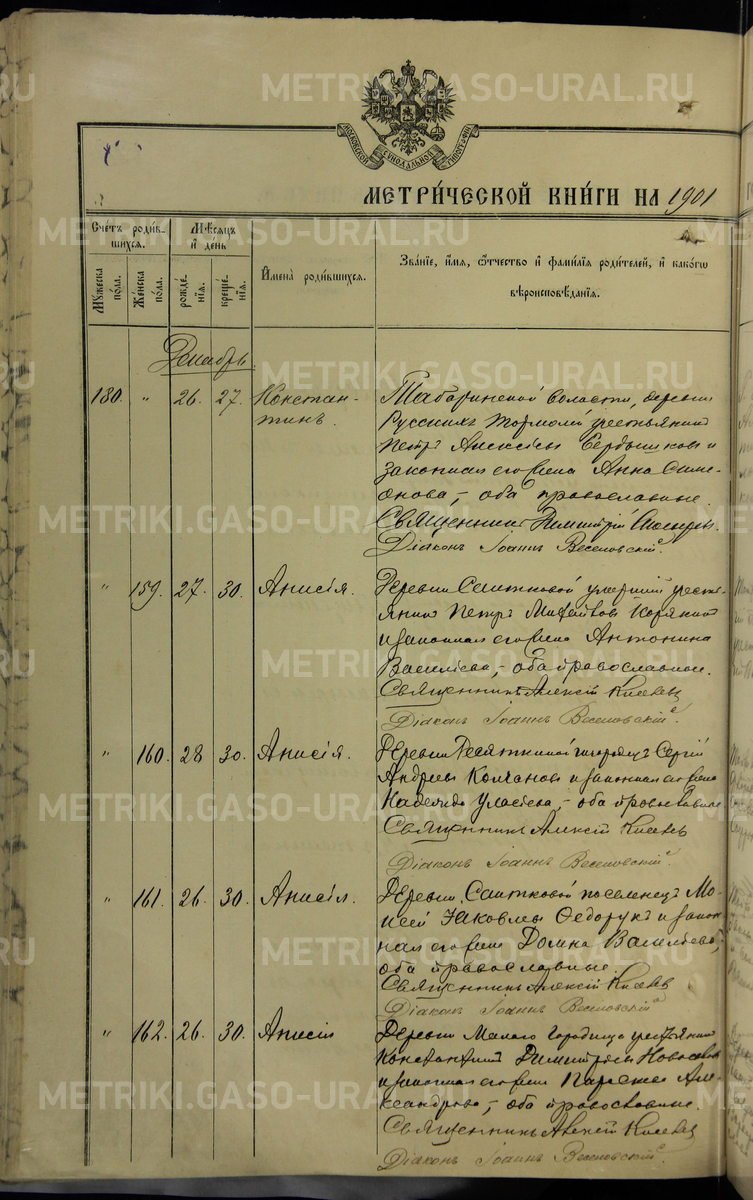 METRIKI.GASO-URAL.RU
МОСКОВСКОЙ СѴНОДАЛЬНОЙ ТИПОГРАФІИ
МЕТРИ́ЧЕСКОЙ КНИ́ГИ НА 1901
Сче́тъ роди́вшихсѧ.
Мꙋ́жеска по́ла.
Же́нска по́ла.
Мѣ́сѧцъ и҆ де́нь
рожде́нїѧ.
креще́нїѧ.
И҆мена̀ роди́вшихсѧ.
Зва́нїе, и҆́мѧ, ѻ҆́тчество и҆ фами́лїѧ роди́телей, и҆ како́гѡ
вѣроисповѣ́данїѧ.
Декабрь
180. " 26. 27. Констан-
тинъ.
Табаринской волости, деревни
Русскихъ крестьянинъ
Петръ Алексѣевъ и
законная его жена Анна Симе-
онова, – оба православные.
Священникъ Димитрій
Діаконъ Іоаннъ Веселовскій
" 159. 27. 30. Анисія.
Деревни Саитковой умершій кресть-
янинъ Петръ
и законная его жена Антонина
Василіева, – оба православные.
Священникъ Алексій
Діаконъ Іоаннъ Веселовскій
" 160. 28 30. Анисія.
Деревни Сергій
Андреевъ Колчановъ и законная его жена
Надежда – оба православные
Священникъ Алексій
Діаконъ Іоаннъ Веселовскій
" 161. 26. 30. Анисія.
Деревни Саитковой поселенецъ Мо-
исей Яковлевъ Федорукъ и закон-
ная его жена Домна Васильева,
оба православные.
Священникъ Алексій
Діаконъ Іоаннъ Веселовскій
" 162. 26. 30. Анисія
Деревни Малаго Городища крестьянинъ
Константинъ Димитріевъ
и законная его жена Але-
ксандрова, – оба православные.
Священникъ Алексій
Діаконъ Іоаннъ Веселовскій